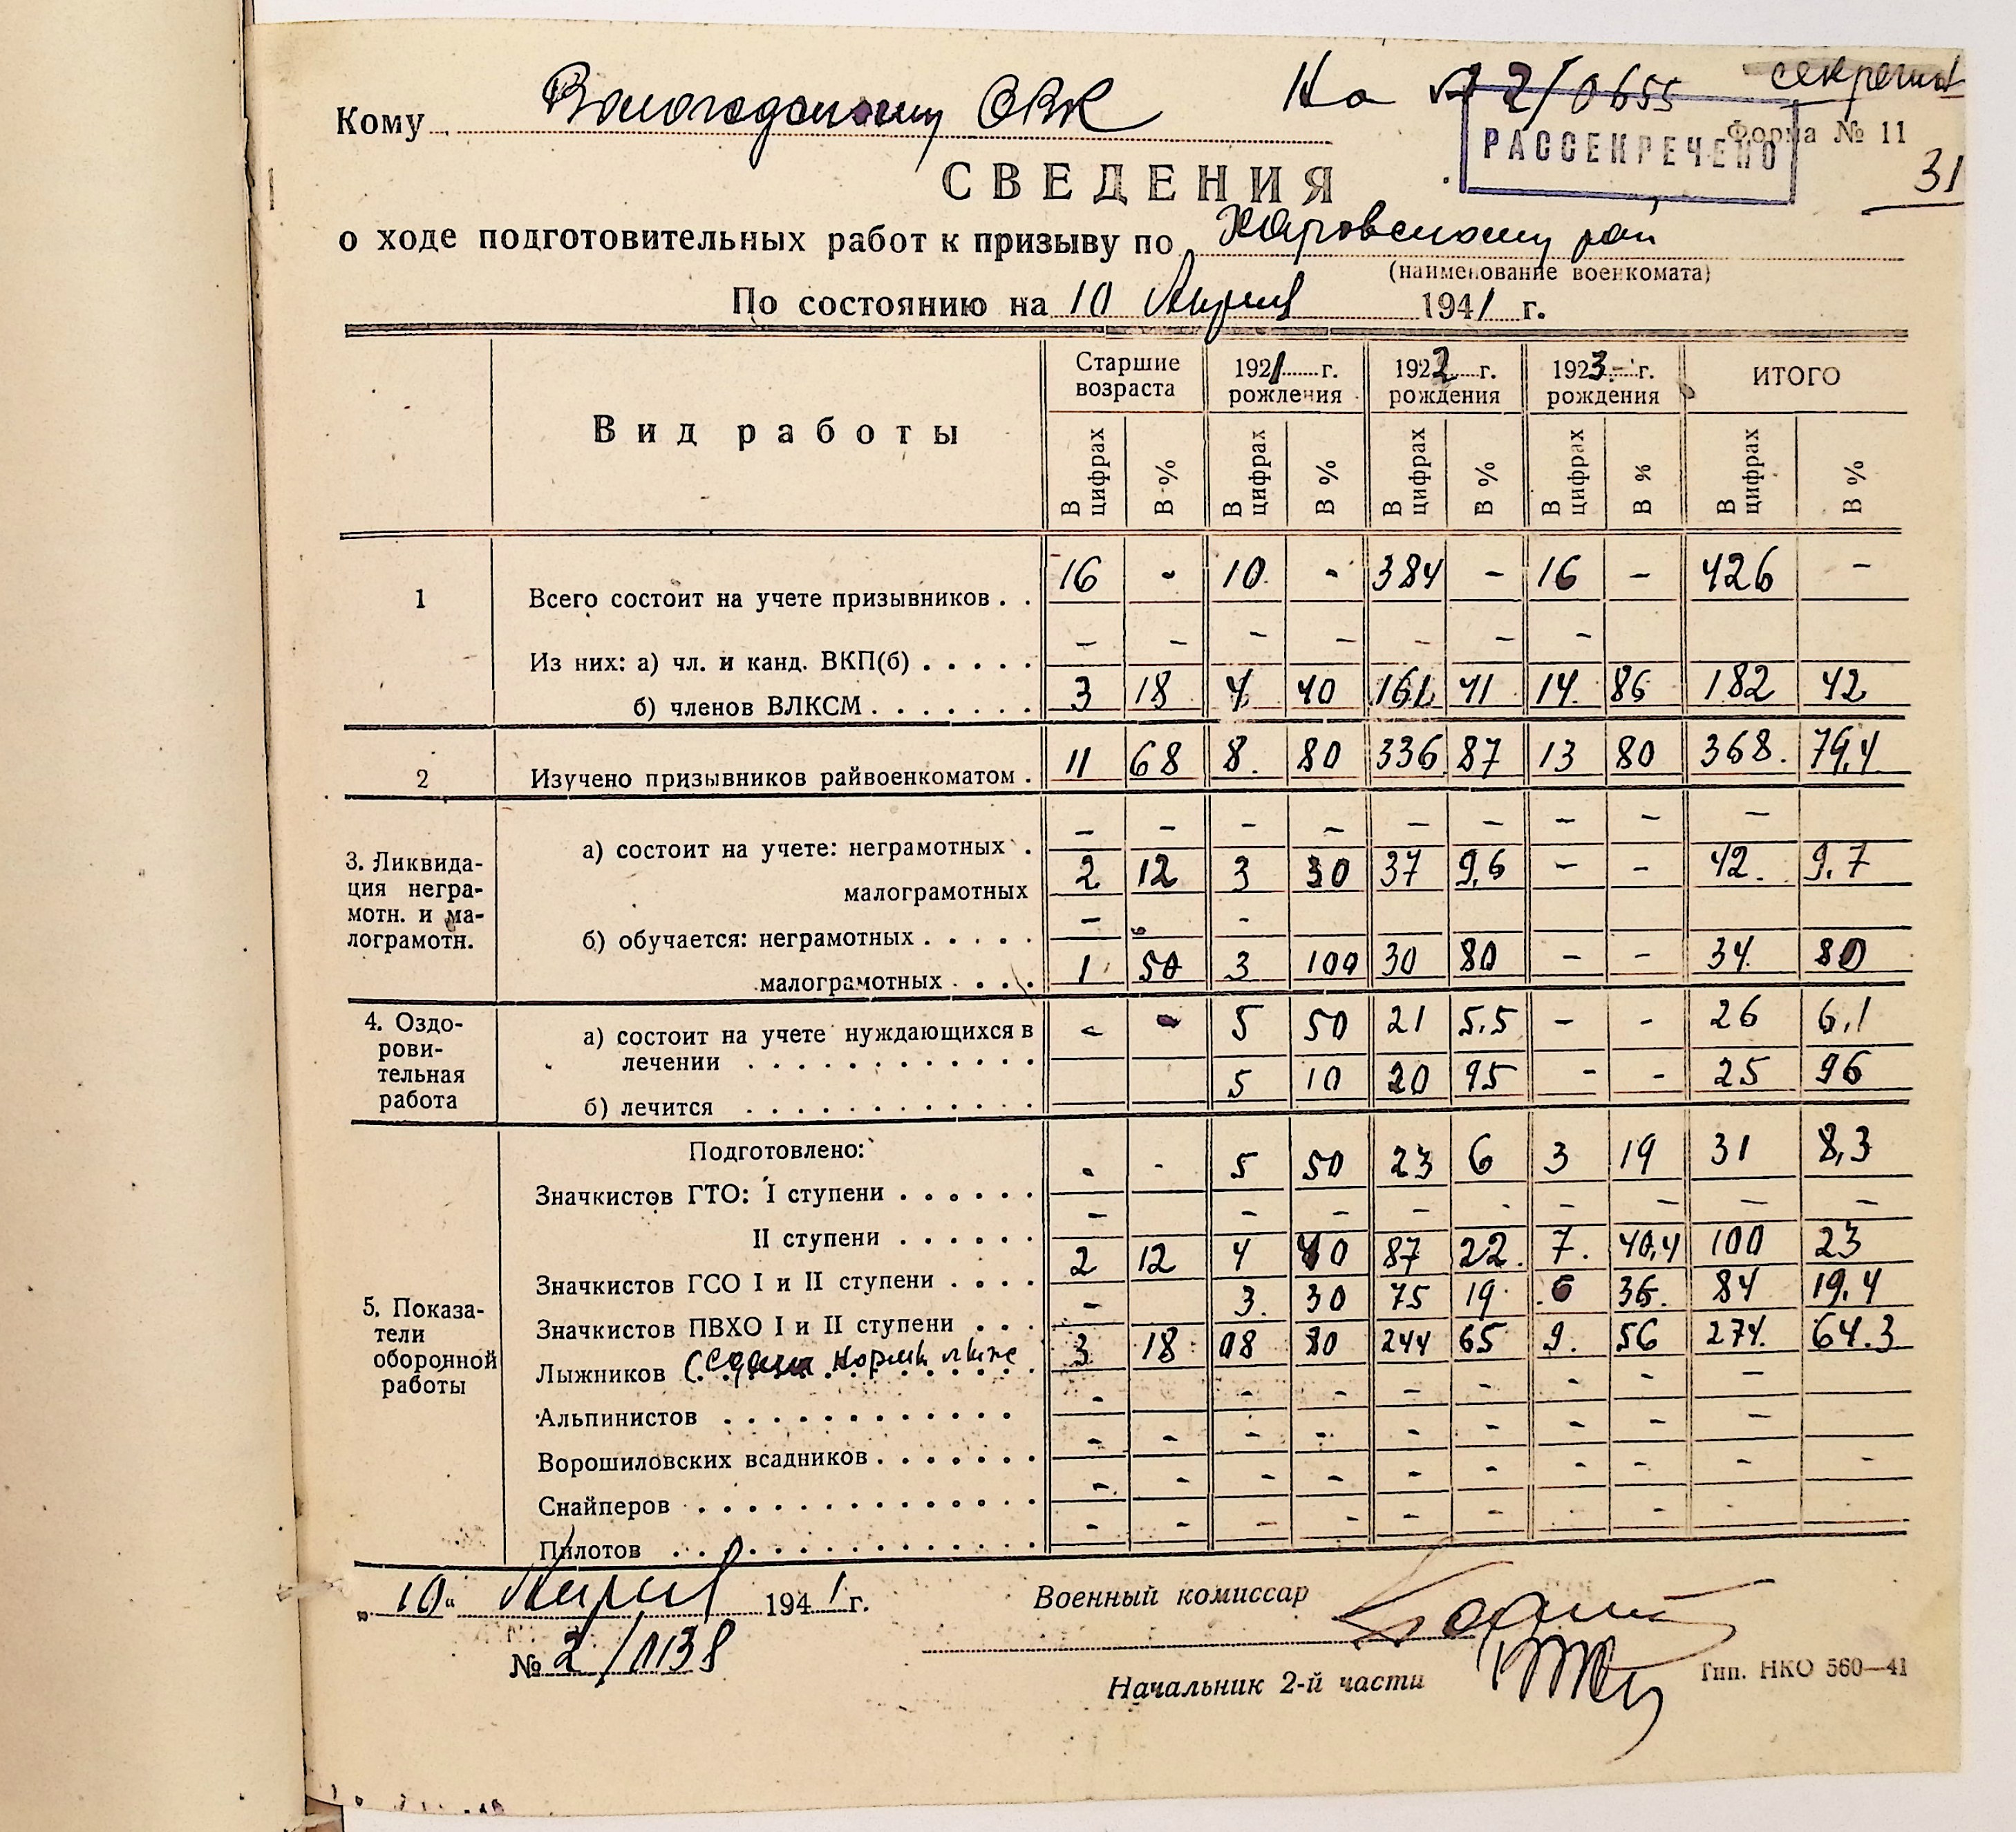 Кому Вологодскому ОВК На № 2/0655 секретно
РАССЕКРЕЧЕНО Форма № 11
31
СВЕДЕНИЯ
о ходе подготовительных работ к призыву по Харовскому рай
(наименование военкомата)
По состоянию на 10 Апреля 1941 г.
Вид работы
Старшие возраста 1921 г. рождения 1922 г. рождения 1923 г. рождения ИТОГО
В цифрах В % В цифрах В % В цифрах В % В цифрах В % В цифрах В %
1 Всего состоит на учете призывников . . 16 - 10 - 384 - 16 - 426 -
Из них: а) чл. и канд. ВКП(б) . . . . . - - - - - - -
б) членов ВЛКСМ . . . . . . . 3 18 4 40 161 41 14 86 182 42
2 Изучено призывников райвоенкоматом . 11 68 8 80 336 87 13 80 368 79,4
3. Ликвида-
ция негра-
мотн. и ма-
лограмотн.
а) состоит на учете: неграмотных . - - - - - - - - -
малограмотных 2 12 3 30 37 9,6 - - 42 9,7
б) обучается: неграмотных . . . . . - -
малограмотных . . . . 1 50 3 100 30 80 - - 34 80
4. Оздо-
рови-
тельная
работа
а) состоит на учете нуждающихся в
лечении . . . . . . . . . . . . - - 5 50 21 5,5 - - 26 6,1
б) лечится . . . . . . . . . . . . 5 10 20 95 - - 25 96
5. Показа-
тели
оборонной
работы
Подготовлено:
Значкистов ГТО: I ступени . . . . . . - - 5 50 23 6 3 19 31 8,3
II ступени . . . . . . - - - - - - - - -
Значкистов ГСО I и II ступени . . . . 2 12 4 40 87 22 7 40,4 100 23
Значкистов ПВХО I и II ступени . . . - 3 30 75 19 6 36 84 19,4
Лыжников (сдавш нормы 3 18 08 80 244 65 9 56 274 64.3
Альпинистов . . . . . . . . . . . . - - - - - - - -
Ворошиловских всадников . . . . . . . - - - - - - - - -
Снайперов . . . . . . . . . . . . . . - - - - - - - - - -
Пилотов . . . . . . . . . . . . . . - - - - - - - -
„10“ Апреля 1941 г.
Военный комиссар
№ 2/1138
Начальник 2-й части
Тип. НКО 560—41